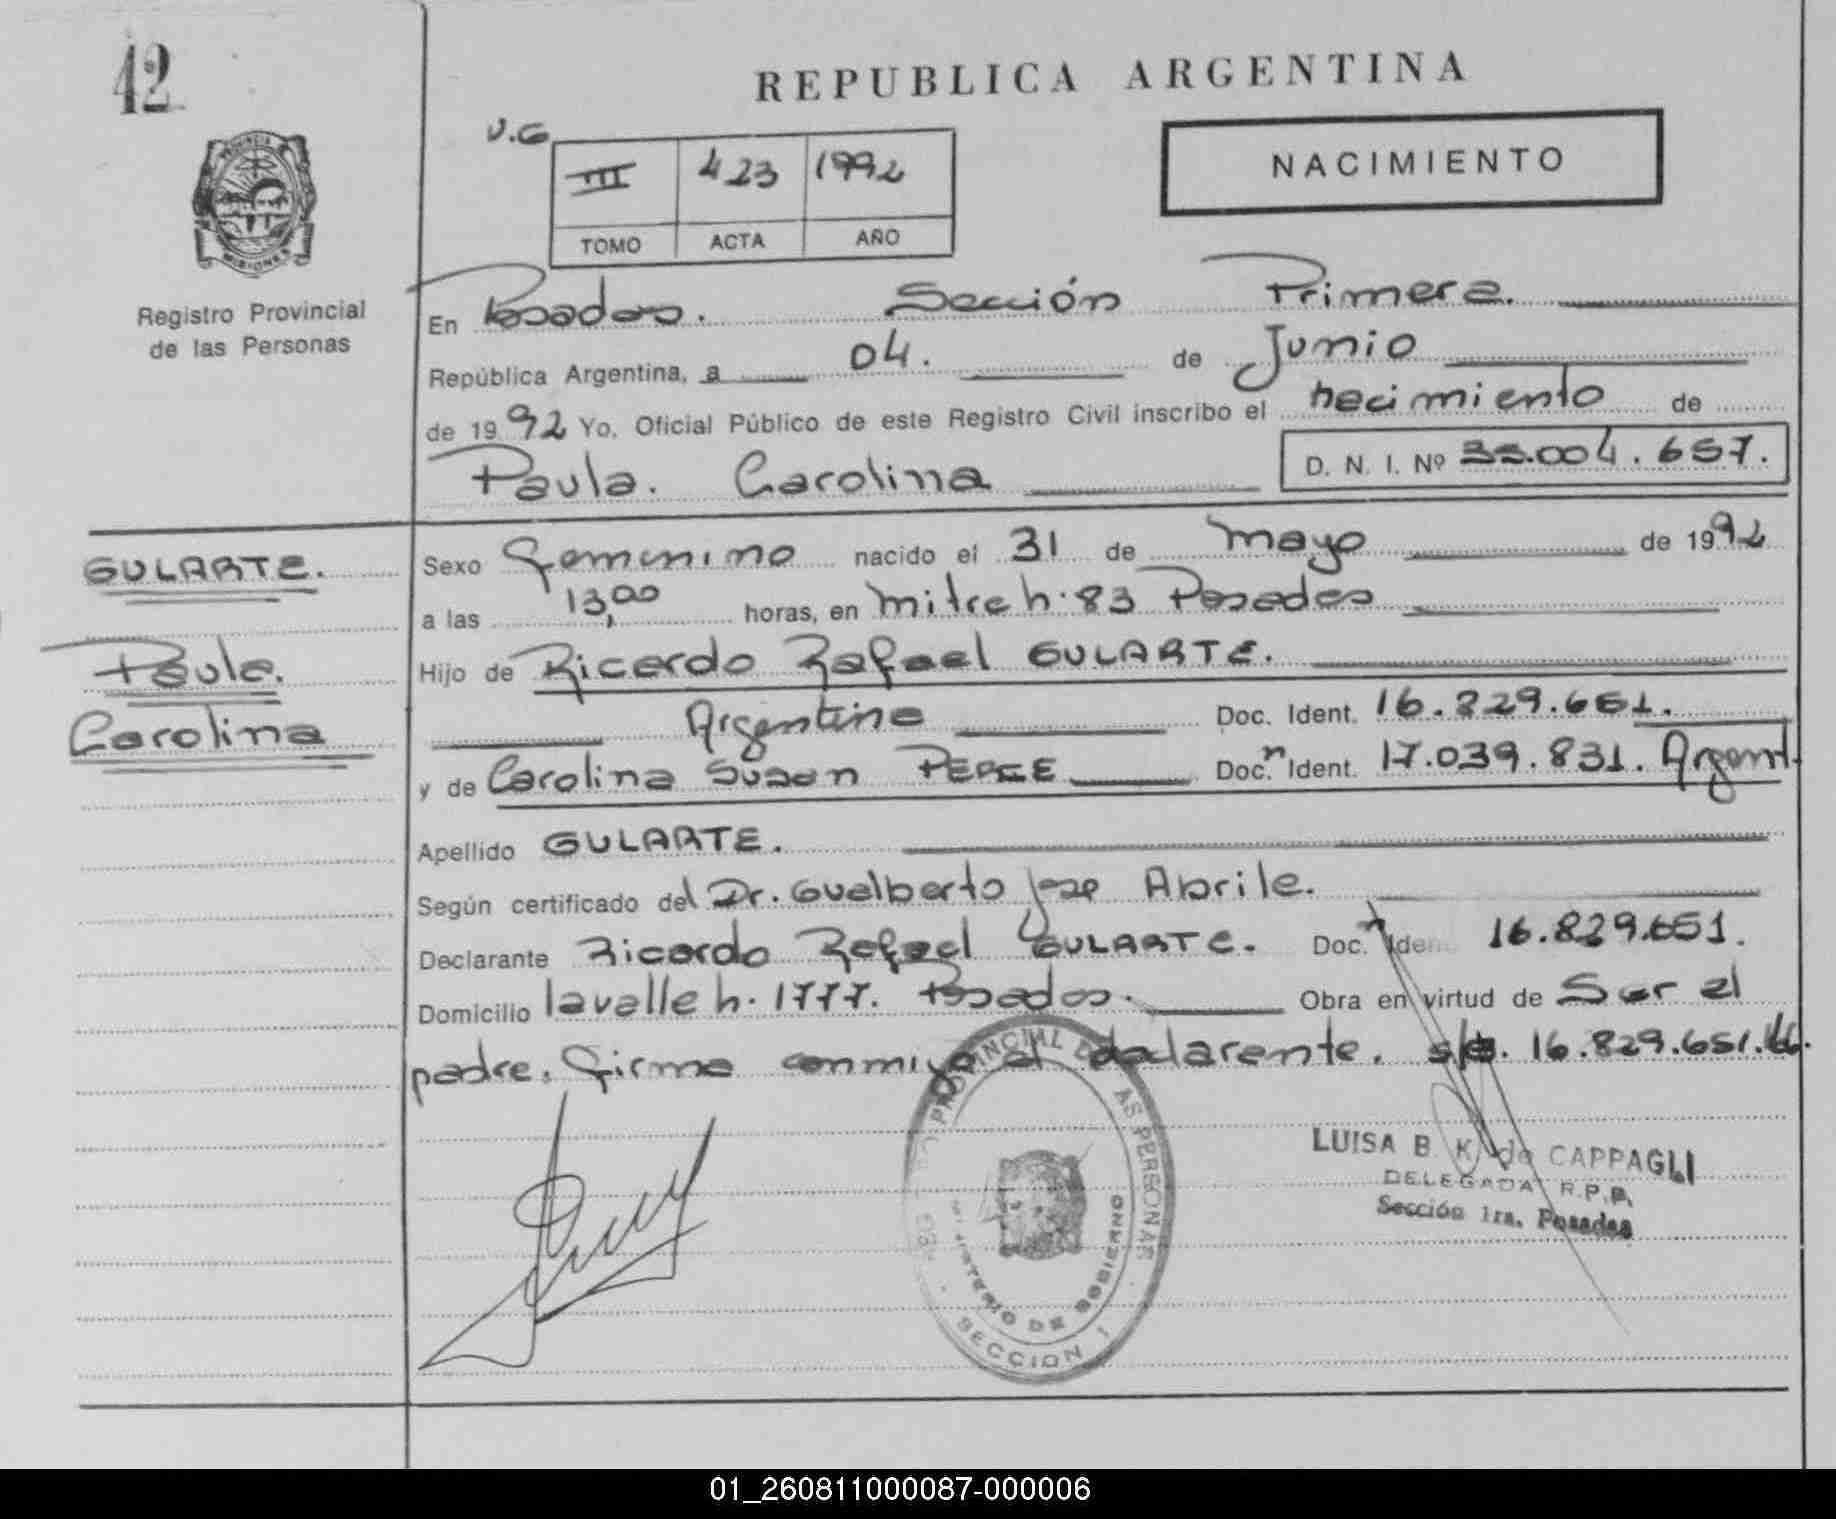 42
REPUBLICA ARGENTINA
V.G
III 423 1992
TOMO ACTA AÑO
NACIMIENTO
PROVINCIA DE
MISIONES
Registro Provincial
de las Personas
En Posadas. Sección Primera.
República Argentina, a 04. de Junio
de 1992 Yo, Oficial Público de este Registro Civil inscribo el nacimiento de
Paula. Carolina D. N. I. Nº 33.004.657.
GULARTE.
Paula.
Carolina
Sexo femenino nacido el 31 de mayo de 1992
a las 13,00 horas, en mitre h. 83 Posadas
Hijo de Ricardo Rafael GULARTE.
Argentino Doc. Ident. 16.829.651.
y de Carolina Susan Doc. Ident. 17.039.831. Argent.
Apellido GULARTE.
Según certificado del Dr. Gualberto Jose Abrile.
Declarante Ricardo Rafael GULARTE. Doc. Iden 16.829.651.
Domicilio lavalle h. 1777. Posadas. Obra en virtud de Ser el
padre. firma conmigo el declarante. 16.829.651.
PROVINCIAL DE LAS PERSONAS
MINISTERIO DE GOBIERNO
SECCION 1
LUISA B. K. de CAPPAGLI
DELEGADA R.P.P.
Sección 1ra. Posadas
01_260811000087-000006